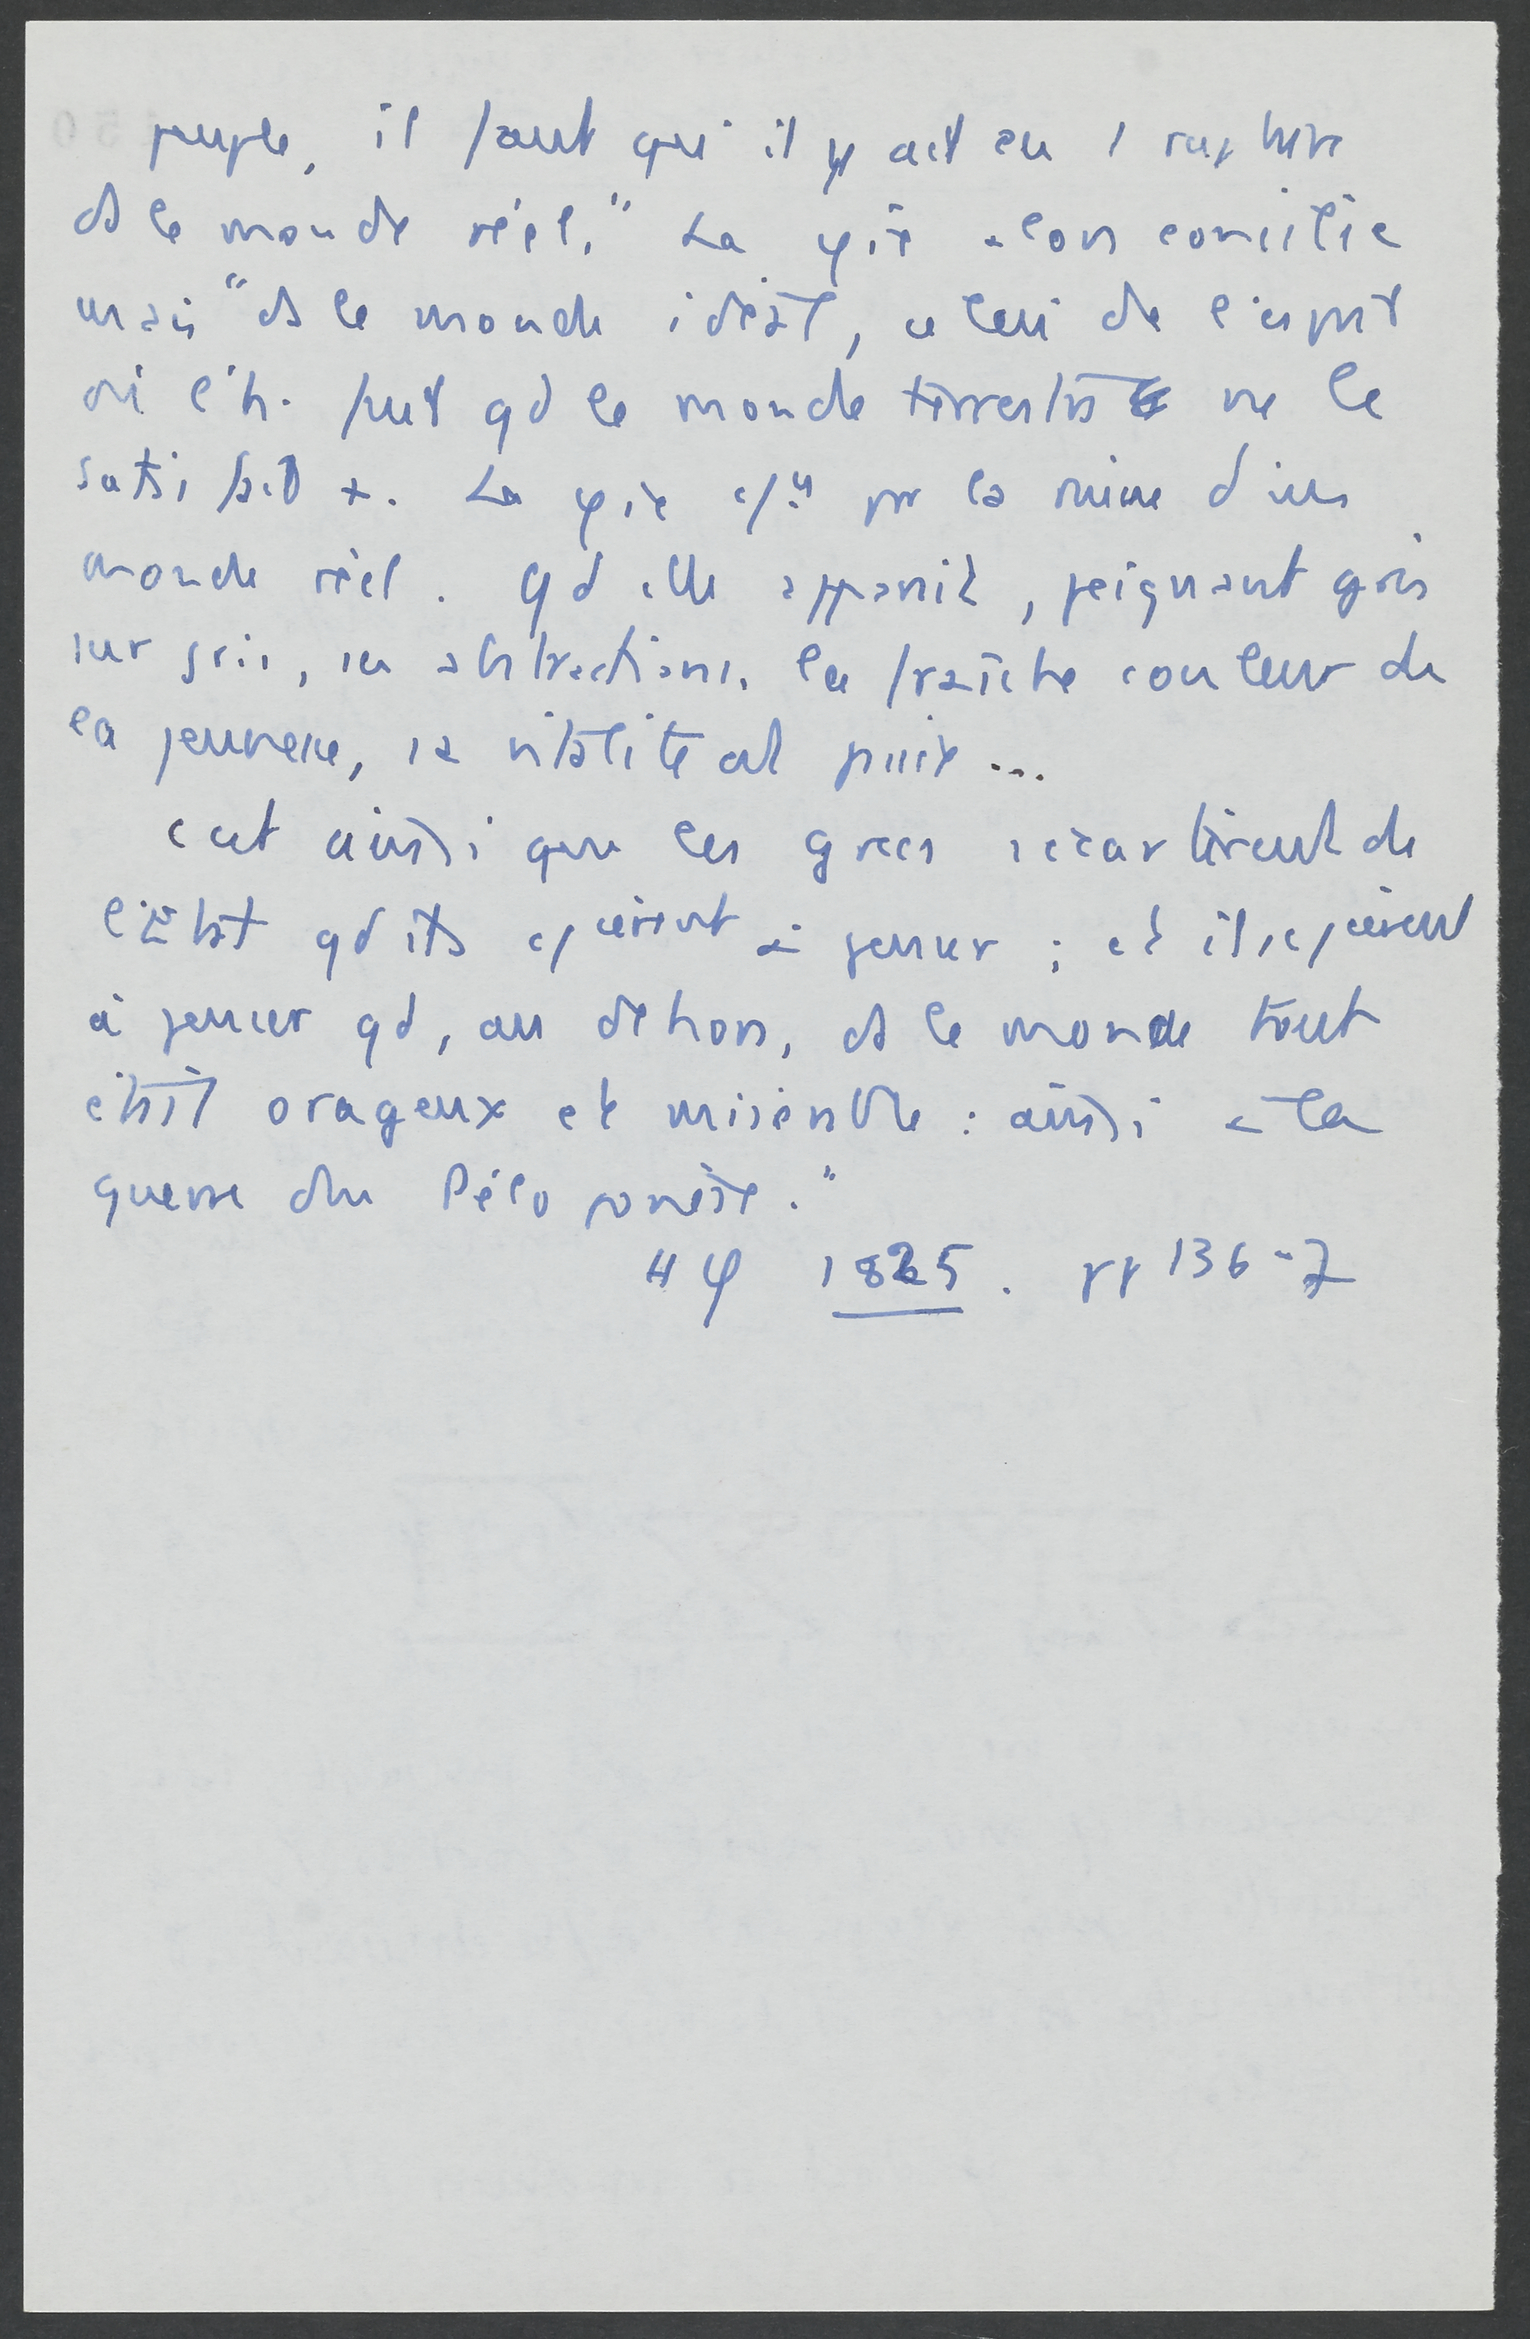 peuple, il faut qu'il y ait eu 1 rupture
ds le monde réel." La φie alors concilie
mais "ds le monde idéal, celui de l'esprit
où l'h. fuit qd le monde terrestre ne le
satisfait +. La φie c/ᵗ par la ruine d'un
monde réel. Qd elle apparaît, peignant gris
sur gris, ses abstractions, la fraîche couleur de
la jeunesse, sa vitalité est passée ...
C'est ainsi que les grecs s'écartèrent de
l'État qd ils c/cèrent à penser ; et ils c/cèrent
à penser qd, au dehors, ds le monde tout
était orageux et misérable : ainsi à la
guerre du Péloponèse."
H φ 1825. pp 136-7